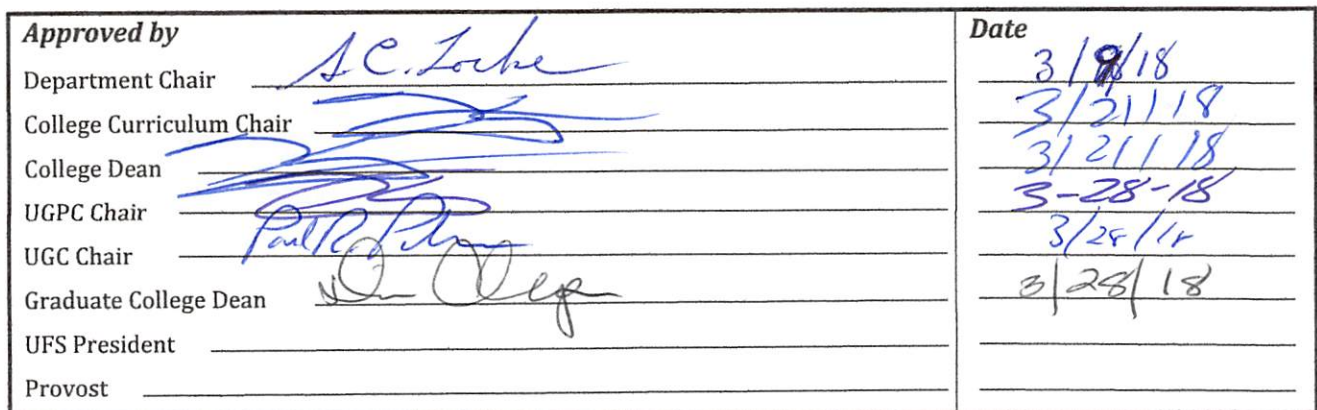 Approved by Date
Department Chair S.C. Locke 3/9/18
College Curriculum Chair 3/21/18
College Dean 3/21/18
UGPC Chair 3-28-18
UGC Chair Paul R. 3/28/18
Graduate College Dean 3/28/18
UFS President
Provost